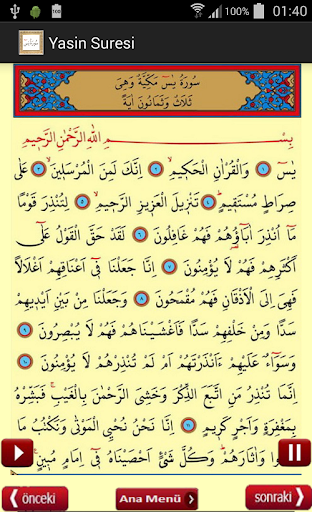 01:40
Yasin Suresi
سُورَةُ يٰسٓ مَكِّيَّةٌ وَهِىَ
ثَلَاثٌ وَثَمَانُونَ اٰيَةً
بِسْـــمِ اللّٰهِ الرَّحْمٰنِ الرَّحِيمِ
يٰسٓ ﴿١﴾ وَالْقُرْاٰنِ الْحَكِيمِ ﴿٢﴾ اِنَّكَ لَمِنَ الْمُرْسَلِينَ ﴿٣﴾ عَلٰى
صِرَاطٍ مُسْتَقِيمٍ ﴿٤﴾ تَنْزِيلَ الْعَزِيزِ الرَّحِيمِ ﴿٥﴾ لِتُنْذِرَ قَوْمًا
مَٓا اُنْذِرَ اٰبَٓاؤُ۬هُمْ فَهُمْ غَافِلُونَ ﴿٦﴾ لَقَدْ حَقَّ الْقَوْلُ عَلٰٓى
اَكْثَرِهِمْ فَهُمْ لَا يُؤْمِنُونَ ﴿٧﴾ اِنَّا جَعَلْنَا فِٓى اَعْنَاقِهِمْ اَغْلَالًا
فَهِىَ اِلَى الْاَذْقَانِ فَهُمْ مُقْمَحُونَ ﴿٨﴾ وَجَعَلْنَا مِنْ بَيْنِ اَيْدِيهِمْ
سَدًّا وَمِنْ خَلْفِهِمْ سَدًّا فَاَغْشَيْنَاهُمْ فَهُمْ لَا يُبْصِرُونَ
﴿٩﴾ وَسَوَٓاءٌ عَلَيْهِمْ ءَاَنْذَرْتَهُمْ اَمْ لَمْ تُنْذِرْهُمْ لَا يُؤْمِنُونَ
﴿١٠﴾ اِنَّمَا تُنْذِرُ مَنِ اتَّبَعَ الذِّكْرَ وَخَشِىَ الرَّحْمٰنَ بِالْغَيْبِ فَبَشِّرْهُ
بِمَغْفِرَةٍ وَاَجْرٍ كَرِيمٍ ﴿١١﴾ اِنَّا نَحْنُ نُحْيِى الْمَوْتٰى وَنَكْتُبُ مَا
وَاٰثَارَهُمْ وَكُلَّ شَىْءٍ اَحْصَيْنَاهُ فِٓى اِمَامٍ مُبِينٍ
önceki
Ana Menü
sonraki